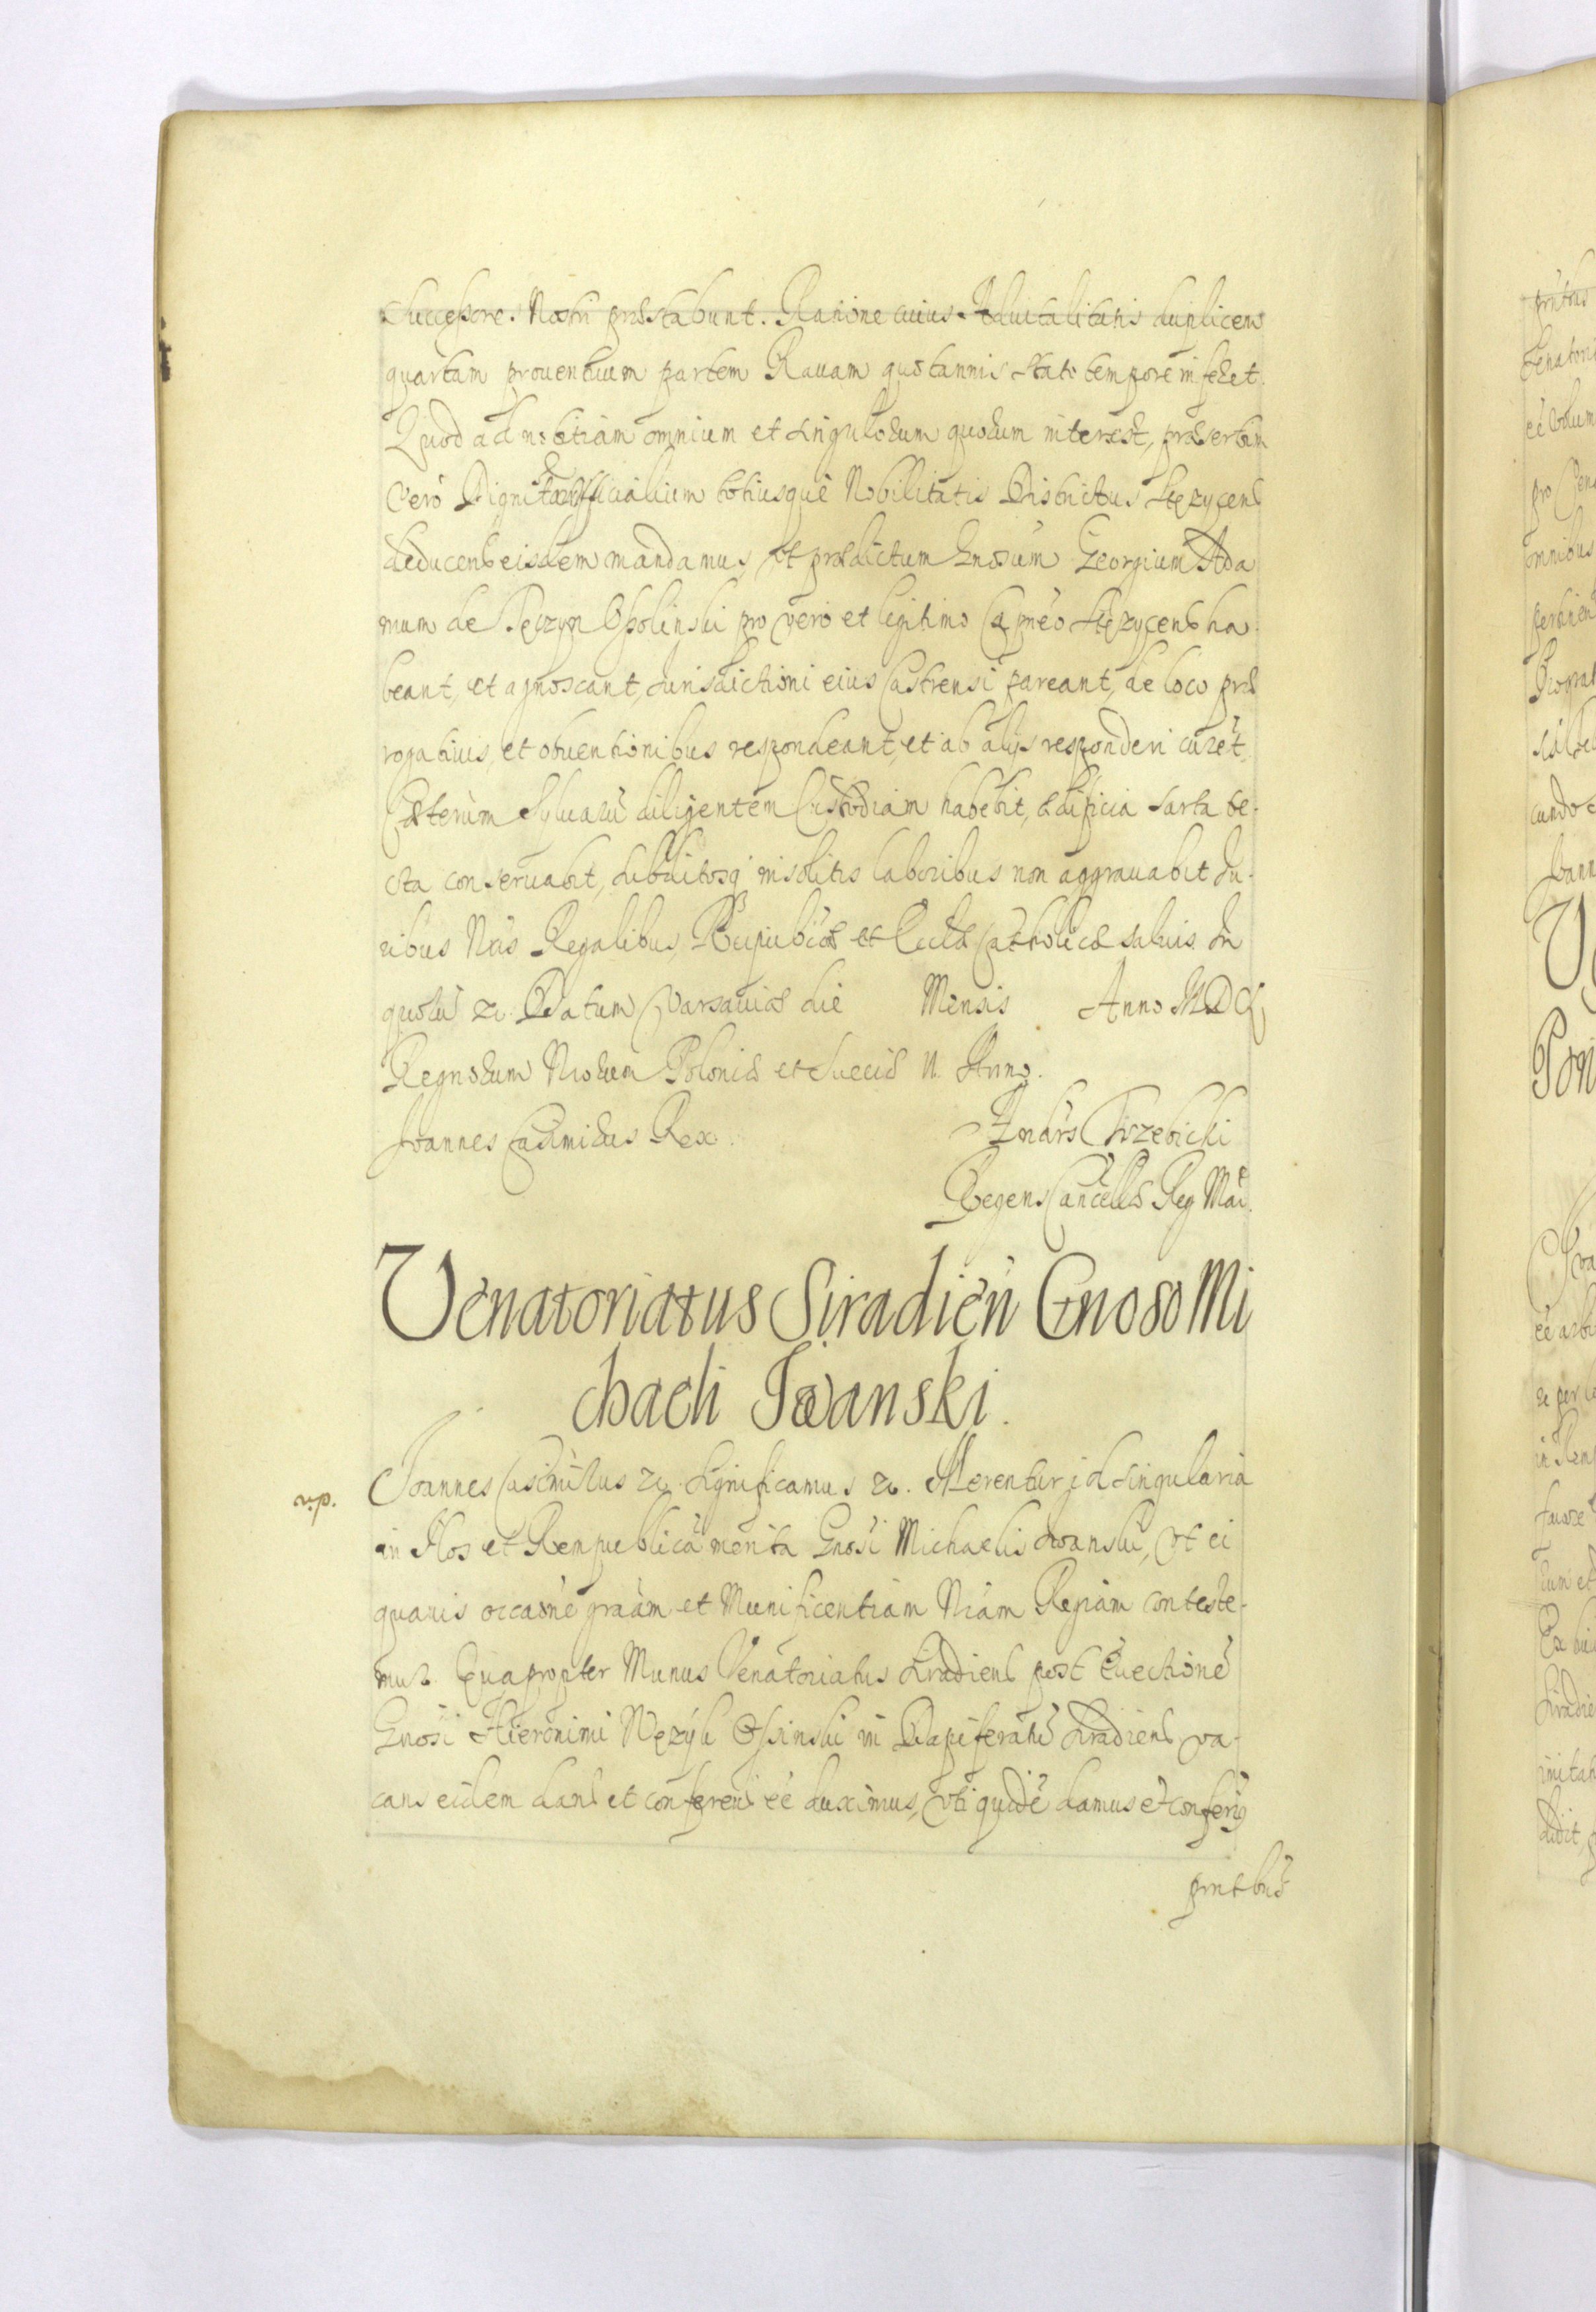 Successores Nostri præstabunt. Ratione cuius Aduitalitatis duplicem
quartam prouentuum partem Rauam quotannis stato tempore inferet.
Quod ad notitiam omnium et singulorum quorum interest, præsertim
vero Dignitar Officialium totiusque Nobilitatis Districtus Stęzycens
deducens eisdem mandamus, vt prædictum Gnosum Georgium Ada
mum de Tęczyn Ossolinski pro vero et legitimo Capneo Stęzycens ha
beant, et agnoscant, Jurisdictioni eius Castrensi pareant, de loco præ
rogatiuis, et obuentionibus respondeant, et ab alijs responderi curet,
Cæterum Syluaru diligentem Custodiam habebit, ædificia sarta te-
cta conseruabit, subditosq insolitis laboribus non aggrauabit Ju-
ribus Nris Regalibus, Reipublicæ et Ecclæ Catholicæ saluis. In
quoru &. Datum Varsauiæ die Mensis Anno MDCL
Regnorum Nrorum Poloniæ et Sueciæ II. Anno.
Joannes Casimirus Rex. Andrs Trzebicki
Regens Cancellæ Reg Mai.
Venatoriatus Siradien Gnoso Mi
chaeli Iwanski.
v.p. Joannes Casimirus &. Significamus &. Merentur id singularia
in Nos et Rempublica merita Gnosi Michaelis Iwanski, vt ei
quauis occasne graam et Munificentiam Nram Regiam conteste-
mur. Quapropter Munus Venatoriatus Siradiens post Euectione
Gnosi Hieronimi Węzyk Ossinski in Dapiferatu Siradiens va-
cans eidem dans et conferens ee duximus, vti quide damus et conferis
pntbus